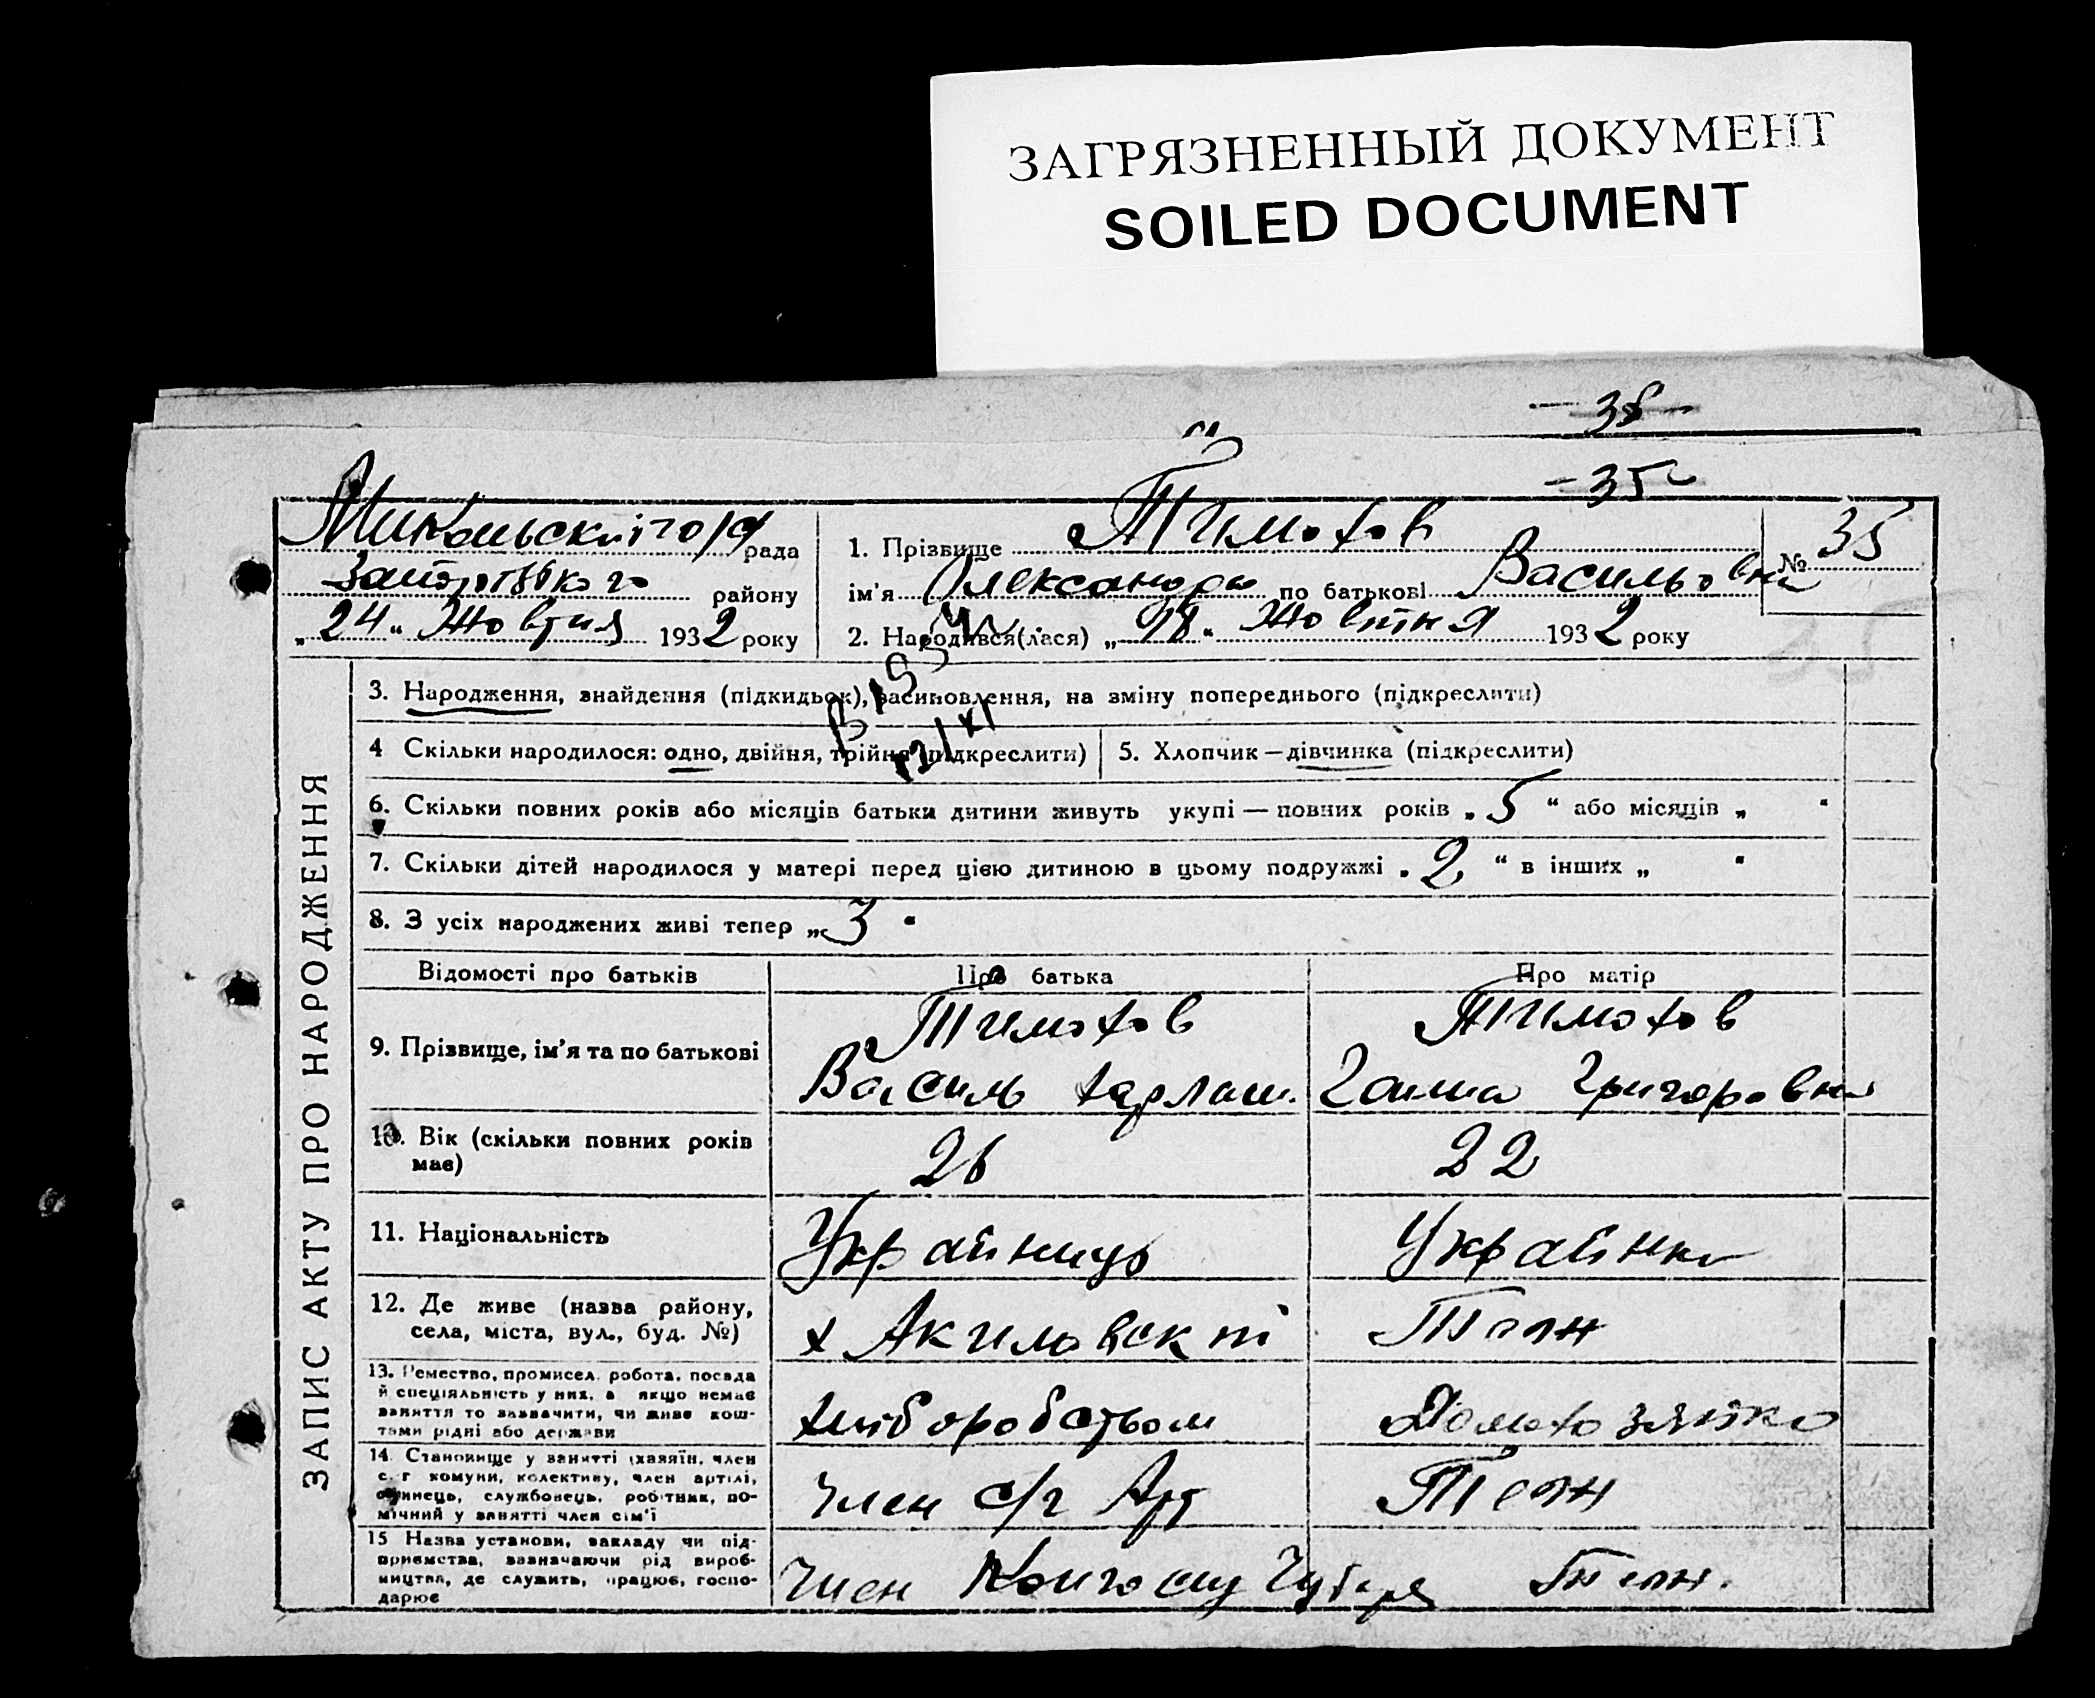 ЗАГРЯЗНЕННЫЙ ДОКУМЕНТ
SOILED DOCUMENT
- 38 -
- 35 -
рада
району
„ 24 “ Жовтня 1932 року
1. Прізвище Тимохов
ім'я Олександра по батькові Васильовна
2. Народився(лася) „ 18 “ Жовтня 1932 року
№ 35
35
ЗАПИС АКТУ ПРО НАРОДЖЕННЯ
3. Народження, знайдення (підкидьок), засиновлення, на зміну попереднього (підкреслити)
4 Скільки народилося: одно, двійня, трійня (підкреслити)
5. Хлопчик — дівчинка (підкреслити)
6. Скільки повних років або місяців батьки дитини живуть укупі — повних років „ 5 “ або місяців „ “
7. Скільки дітей народилося у матері перед цією дитиною в цьому подружжі „ 2 “ в інших „ “
8. З усіх народжених живі тепер „ 3 “
Відомості про батьків
Про батька
Про матір
9. Прізвище, ім'я та по батькові
Тимохов
Василь
Тимохов
Галина Григоровна
10. Вік (скільки повних років має)
26
22
11. Національність
Українць
Українка
12. Де живе (назва району, села, міста, вул., буд. №)
х Акимовскпі
13. Ремество, промисел, робота, посада й спеціяльність у них, а якщо немає заняття то зазначити, чи живе коштами рідні або держави
хліборобством
Домохозяйка
14. Становище у занятті (хазяїн, член с.-г комуни, колективу, член артілі, одинець, службовець, робітник, помічний у занятті член сім'ї
Член с/г Арт
15 Назва установи, закладу чи підприємства, зазначаючи рід виробництва, де служить, працює, господарює
Член Колгоспу Чубаря